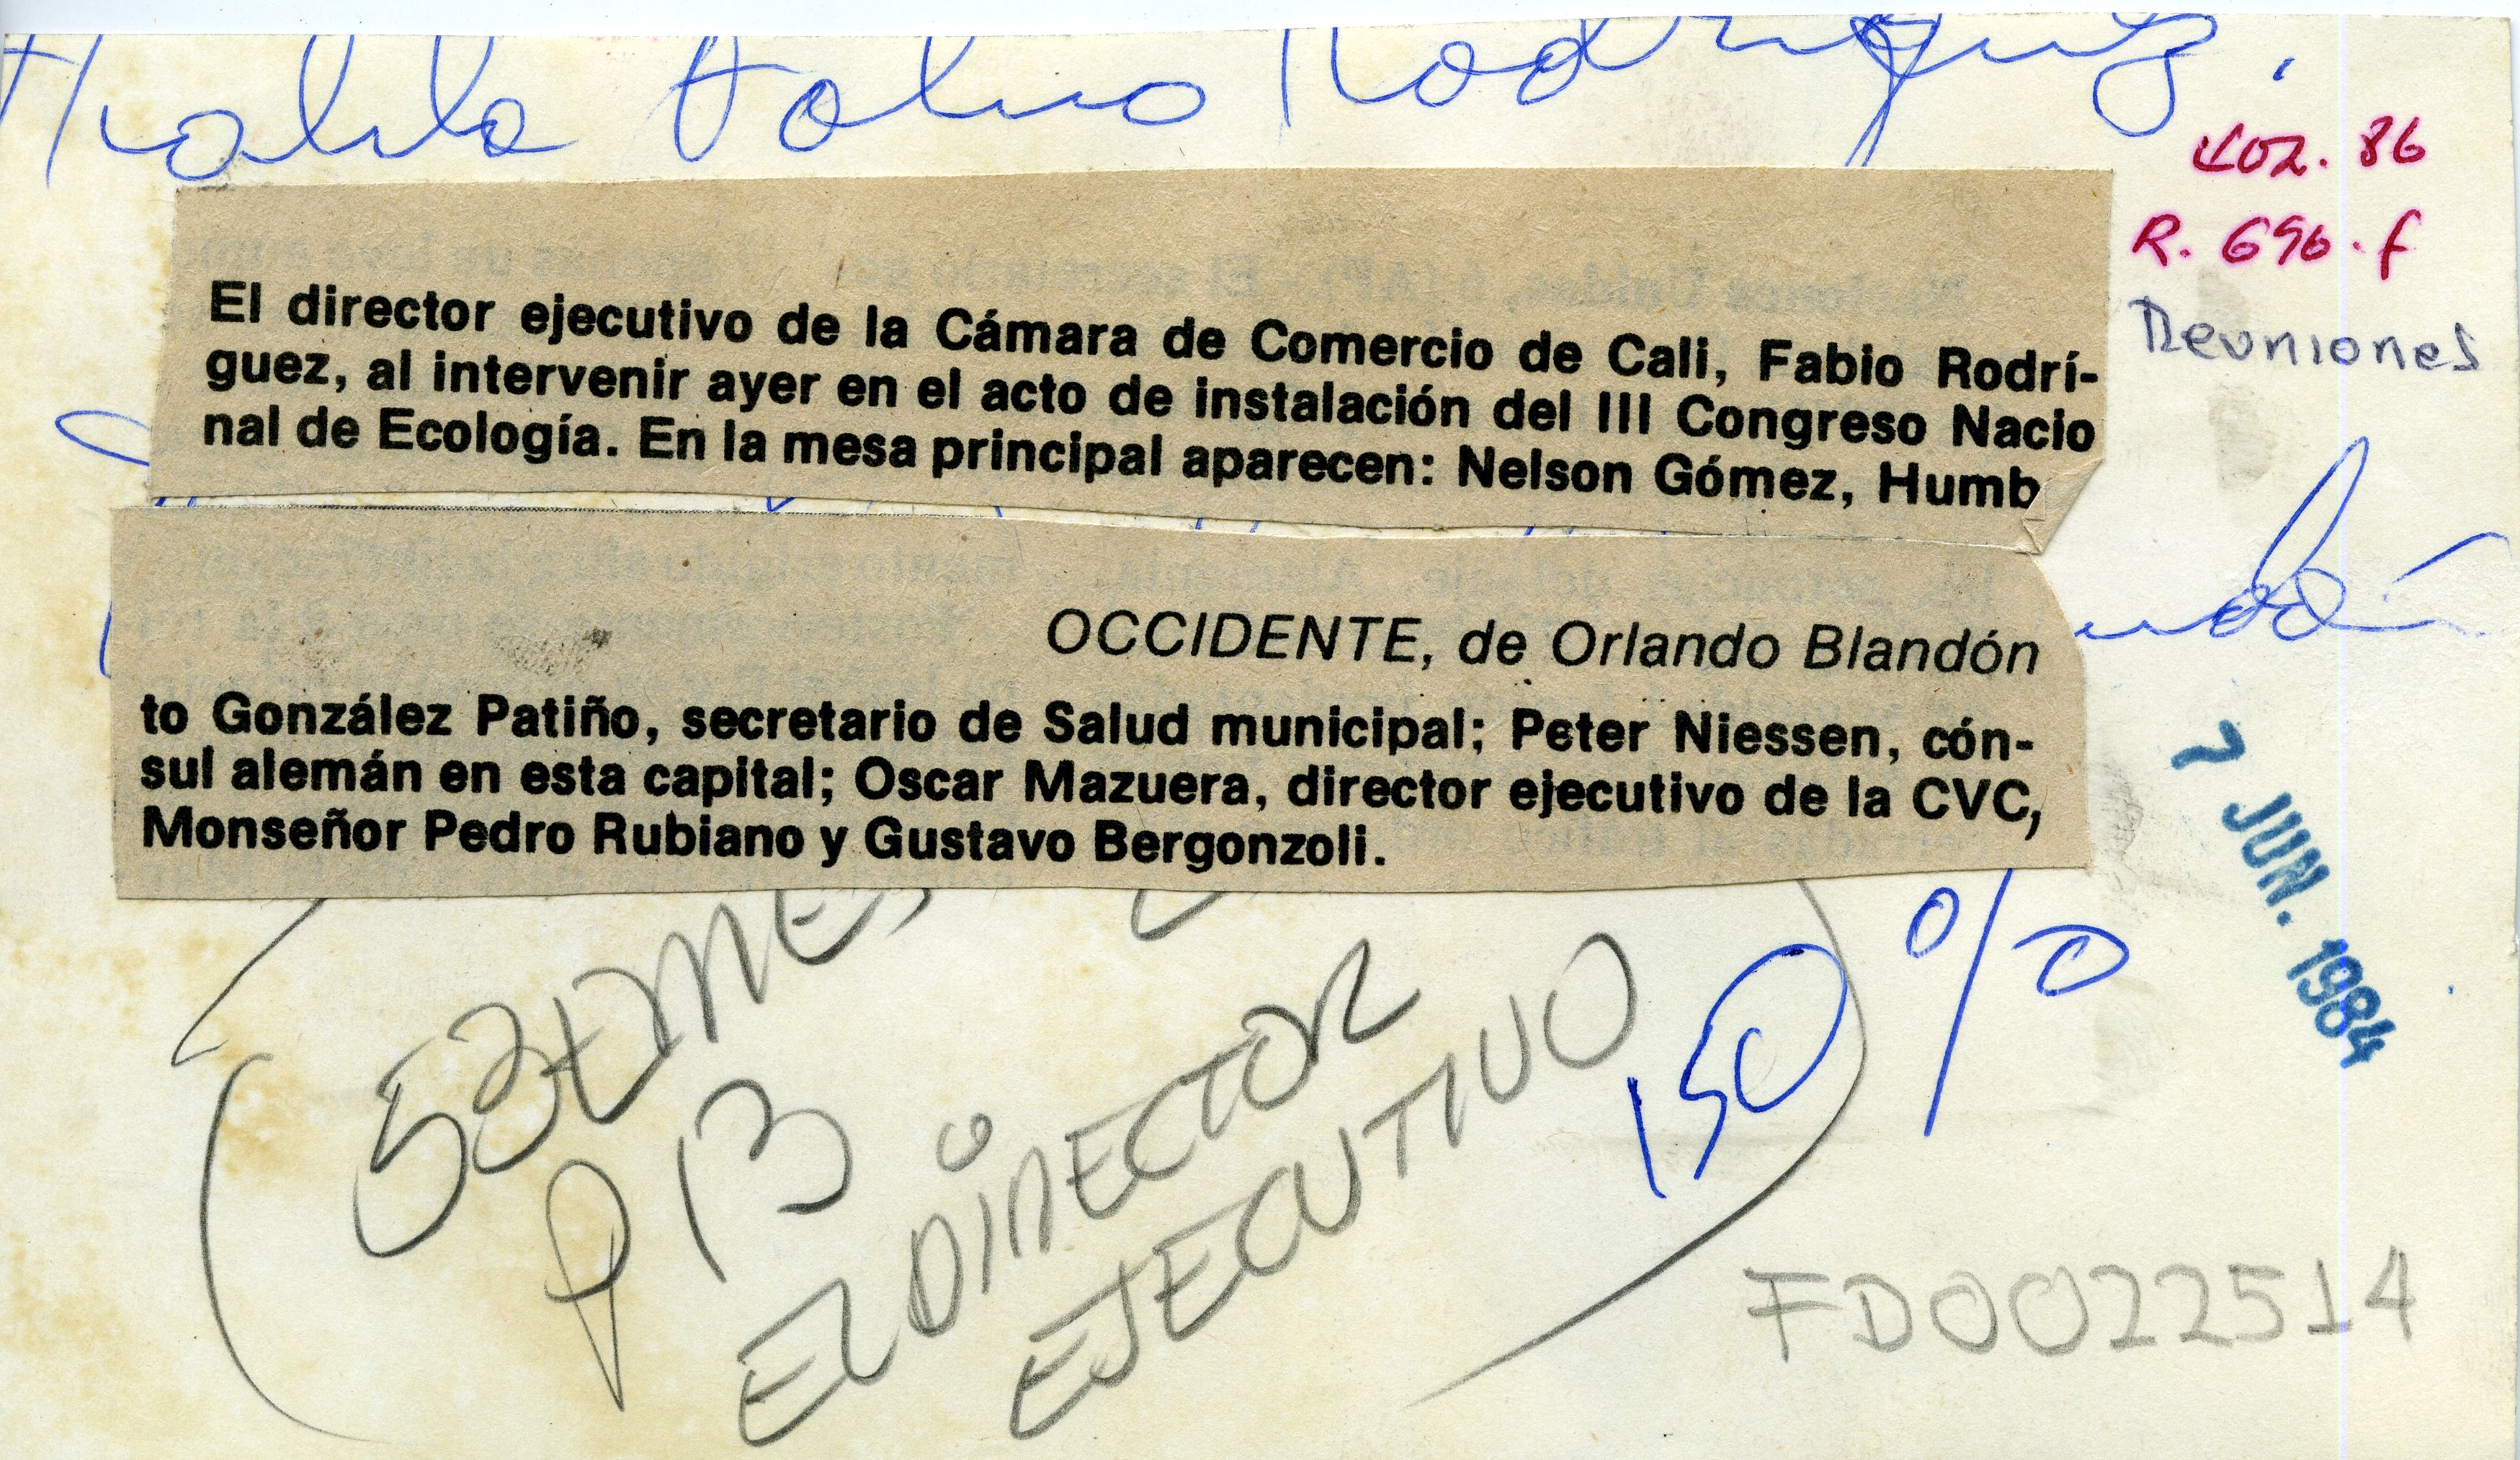 Habla Fabio Rodríguez.
402.86
R. 696.f
Reuniones
El director ejecutivo de la Cámara de Comercio de Cali, Fabio Rodrí-
guez, al intervenir ayer en el acto de instalación del III Congreso Nacio
nal de Ecología. En la mesa principal aparecen: Nelson Gómez, Humb
OCCIDENTE, de Orlando Blandón
to González Patiño, secretario de Salud municipal; Peter Niessen, cón-
sul alemán en esta capital; Oscar Mazuera, director ejecutivo de la CVC,
Monseñor Pedro Rubiano y Gustavo Bergonzoli.
7 JUN. 1984
150 %
P 13
EL DIRECTOR
EJECUTIVO
FD0022514